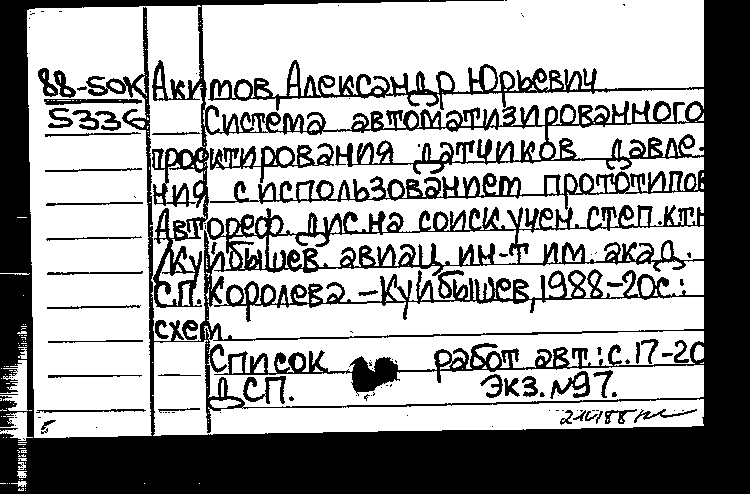 88-50К Акимов, Александр Юрьевич
5336 Система автоматизированного
проектирования датчиков давле-
ния с использованием прототипов
Автореф. дис. на соиск. учен. степ. ктн
/Куйбышев. авиац. ин-т им. акад.
С.П. Королева. – Куйбышев, 1988.-20с.:
схем.
Список работ авт.: с. 17-20
ДСП. Экз. №97.